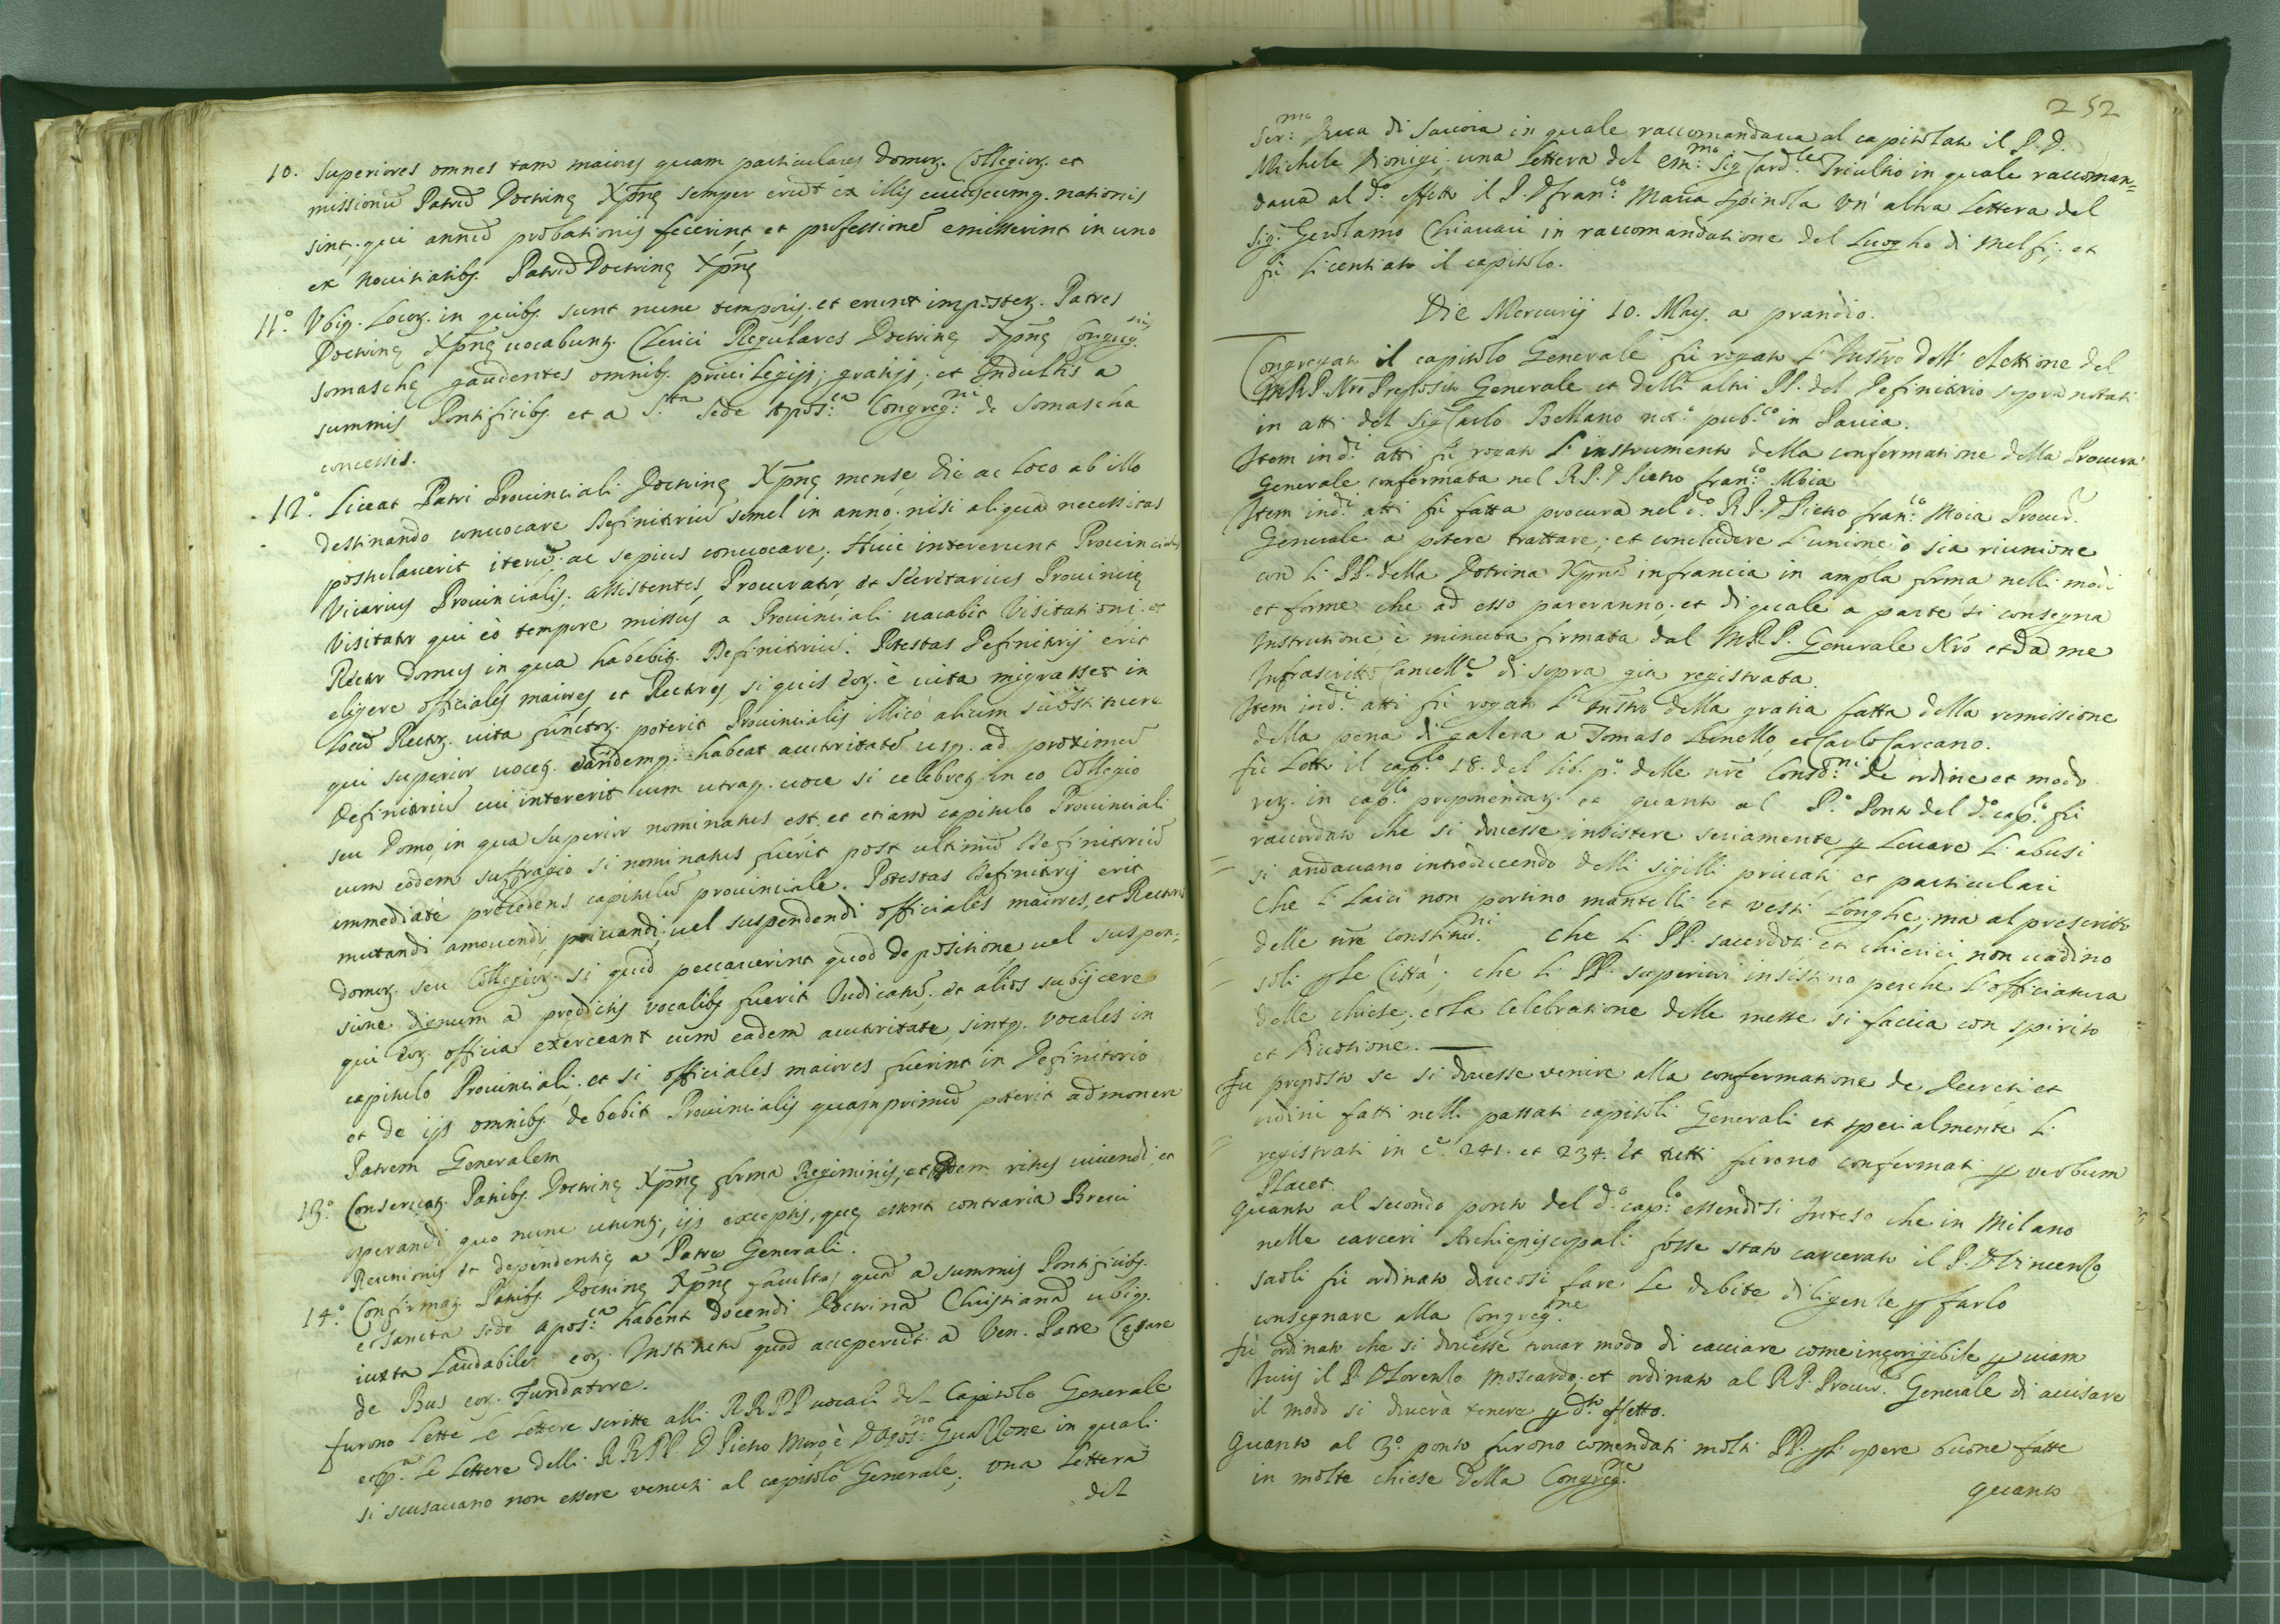 10. Superiores omnes tam maiores quam particulares domorꝫ. Collegiorꝫ. et
missionū Patrū Doctrinę Xp̄nę semper erūt ex illis cuiuscumqꝫ. nationis
sint, qui annū probationis fecerint, et professionē emisserint in uno
ex Nouitiatibꝫ. Patrū Doctrinę Xp̄nę
11.° Vbiqꝫ. Locorꝫ. in quibꝫ. sunt nunc temporis, et erunt imposterꝫ. Patres
Doctrinę Xp̄nę uocabuntꝫ. Clerici Regulares Doctrinę Xp̄nę Congreg.nis
somaschę gaudentes omnibꝫ. priuilegijs; gratijs; et Indultis a
summis Pontificibꝫ. et a S.ta Sede Apos:ca Congreg:ni de Somascha
concessis.
12.° Liceat Patri Prouinciali Doctrinę Xp̄nę mense, die ac loco ab illo
destinando conuocare Definitoriū semel in anno; nisi aliqua necessitas
postulauerit iterū; ac sepius conuocare; Huic intererunt Prouincialis
Vicarius Prouincialis; assistentes, Procurator, et Secretarius Prouincię
Visitator qui eò tempore missus a Prouinciali uacabit Visitationi; et
Rector domus in qua habebitꝫ. Definitoriū. Potestas Definitorij erit
eligere officiales maiores, et Rectores, si quis eorꝫ. è uita migrasset in
locū Rectorꝫ. uita functorꝫ. poterit Prouincialis illicò alium substituere
qui superior uocetꝫ. eandemqꝫ. habeat auctoritatē usqꝫ. ad proximū
Definitoriū cui intererit cum utraqꝫ. uoce si celebretꝫ. in eo Collegio
seu Domo, in qua superior nominatus est, et etiam capitulo Prouinciali
cum eodem suffragio si nominatus fuerit post ultimū Definitoriū
immediatè precedens capitulū prouinciale. Potestas Definitorij erit
mutandi amouendi, priuandi, uel suspendendi officiales maiores, et Rectores
domorꝫ. seu Collegiorꝫ. si quid peccauerint quod depositione, uel suspen=
sione dignum a prędictis vocalibꝫ. fuerit Iudicatū; et alios subijcere
qui eorꝫ. officia exerceant cum eadem auctoritate, sintqꝫ. vocales in
capitulo Prouinciali; et si officiales maiores fuerint in Definitorio
et de ijs omnibꝫ. debebit Prouincialis quamprimū poterit admonere
Patrem Generalem
13.° Conseruatꝫ. Patribꝫ. Doctrinę Xp̄nę forma Regiminis, et idem ritus uiuendi, et
operandi quo nunc utuntꝫ., ijs exceptis, quę essent contraria Breui
Reunionis et dependentię a Patre Generali.
14.° Confirmatꝫ. Patribꝫ. Doctrinę Xp̄nę facultas quā a summis Pontificibꝫ.
et sancta sede apos:ca habent docendi Doctrinā Christianā ubiqꝫ.
iuxta laudabile eorꝫ. Institutū quod acceperūt a Ven. Patre Cęsare
de Bus eorꝫ. Fundatore.
furono lette le lettere scritte alli RRPP uocali del Capitolo Generale
le lettere delli RRPP. D Pietro Moro è D Agos:no Guazzone in quali
si scusauano non essere venuti al capitolo Generale; una lettera
del
252
Ser:mo Duca di Sauoia in quale raccomandaua al capitolato il P. D.
Michele Dionigi; una lettera del em:mo Sig Card:le Triultio in quale raccoman=
daua al d.° effetto il P. D fran:co Maria Spinola Vn' altra Lettera del
Sig.r Gerolamo Chiauari in raccomandatione del Luogho di Melfi; et
fù licentiato il capitolo.
Die Mercurij 10. May. a prandio.
Congregato il capitolo Generale fù rogato l' Instro dell' elettione del
MRP. Nro Preposito Generale et delli altri PP. del Definitorio sopra notati
in atti del Sig Carlo Bellano not.° pub.co in Pauia.
Item in d.i atti fù rogato l' instrumento della confermatione della Procura
Generale confermata nel RP. D Pietro fran:co Moia
Item in d.i atti fù fatta procura nel d.° RP. D Pietro fran:co Moia Procur.e
Generale a potere trattare; et concludere l'unione ò sia riunione
con li PP. della Dotrina Xp̄na in francia in ampla forma nelli modi
et forme che ad esso pareranno; et di quale a parte si consegna
Instrutione, è minuta firmata dal MRP. Generale Nrō et da me
Infrascritto Cancell.e di sopra gia registrata.
Item in d.i atti fù rogato l' Instro della gratia fatta della remissione
della pena di galera a Tomaso Linello, et Carlo Carcano.
fù letto il cap.lo 18. del lib. p.° delle nrē Consti:ni de ordine et modo
rerꝫ. in cap.lo proponendarꝫ. et quanto al P.° Ponto del d.° cap.lo fù
raccordato che si douesse insistere seriamente ꝑ leuare li abusi
= si andauano introducendo delli sigilli priuati et particulari
Che li laici non portino mantelli et vesti longhe; ma al prescritto
delle nrē constitut.ni Che li PP. sacerdoti et chierici non uadino
= soli ꝑ le Città; che li PP. superiori insistino perche l'officiatura
delle chiese; et la celebratione delle messe si faccia con spirito
et Diuotione.
fu proposto se si douesse venire alla confermatione de Decreti et
ordini fatti nelli passati capitoli Generali et specialmente li
= registrati in c.e 241. et 234. et tutti furono confermati ꝑ verbum
Placet.
Quanto al secondo ponto del d.° cap.lo essendosi Inteso che in Milano
nelle carceri Archiepiscopali fosse stato carcerato il P. D Vincenzo
saoli fù ordinato douersi fare le debite diligenze ꝑ farlo
consegnare alla Congreg.ne
fù ordinato che si douesse trouar modo di cacciare come incorrigibile ꝑ uiam
Iuris il P. D Lorenzo Moscardo; et ordinato al RP. Procur.e Generale di auisare
il modo si douerà tenere ꝑ d.to effetto.
Quanto al 3.° ponto furono comendati molti PP. ꝑ li opere buone fatte
in molte chiese della Congreg.ne
quanto